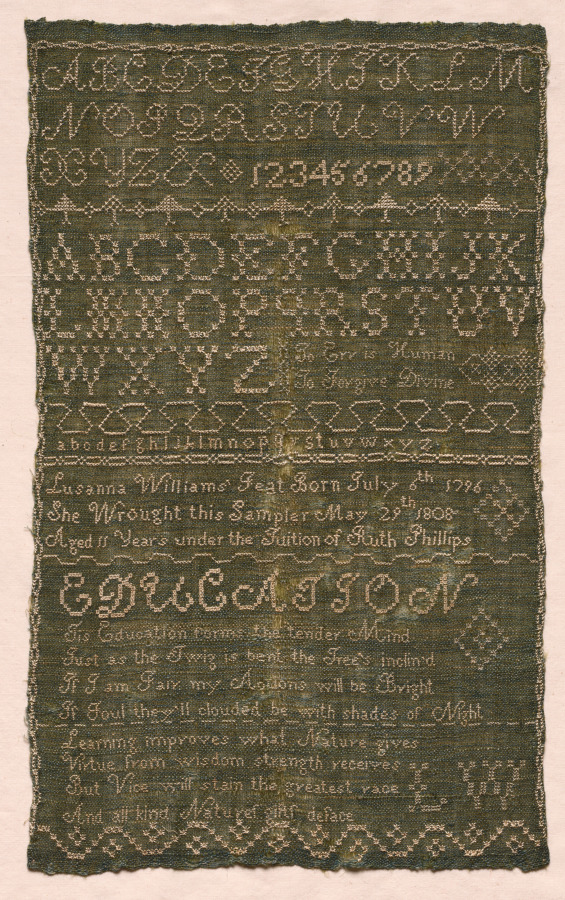 A B C D E F G H I K L M
N O P Q R S T U V W
X Y Z & 1 2 3 4 5 6 7 8 9
A B C D E F G H I J K
L M N O P Q R S T U V
W X Y Z To Err is Human
To Forgive Divine
a b c d e f g h i j k l m n o p q r s t u v w x y z
Lusanna Williams Feat Born July 6th 1796
She Wrought this Sampler May 29th 1808
Aged 11 Years under the Tuition of Ruth Phillips
EDUCATION
Tis Education forms the tender Mind
Just as the Twig is bent the Tree's inclin'd
If I am Fair my Actions will be Bright
If Foul they'll clouded be with shades of Night
Learning improves what Nature gives
Virtue from wisdom strength receives
But Vice will stain the greatest race
And all kind Natures gifts deface
L W